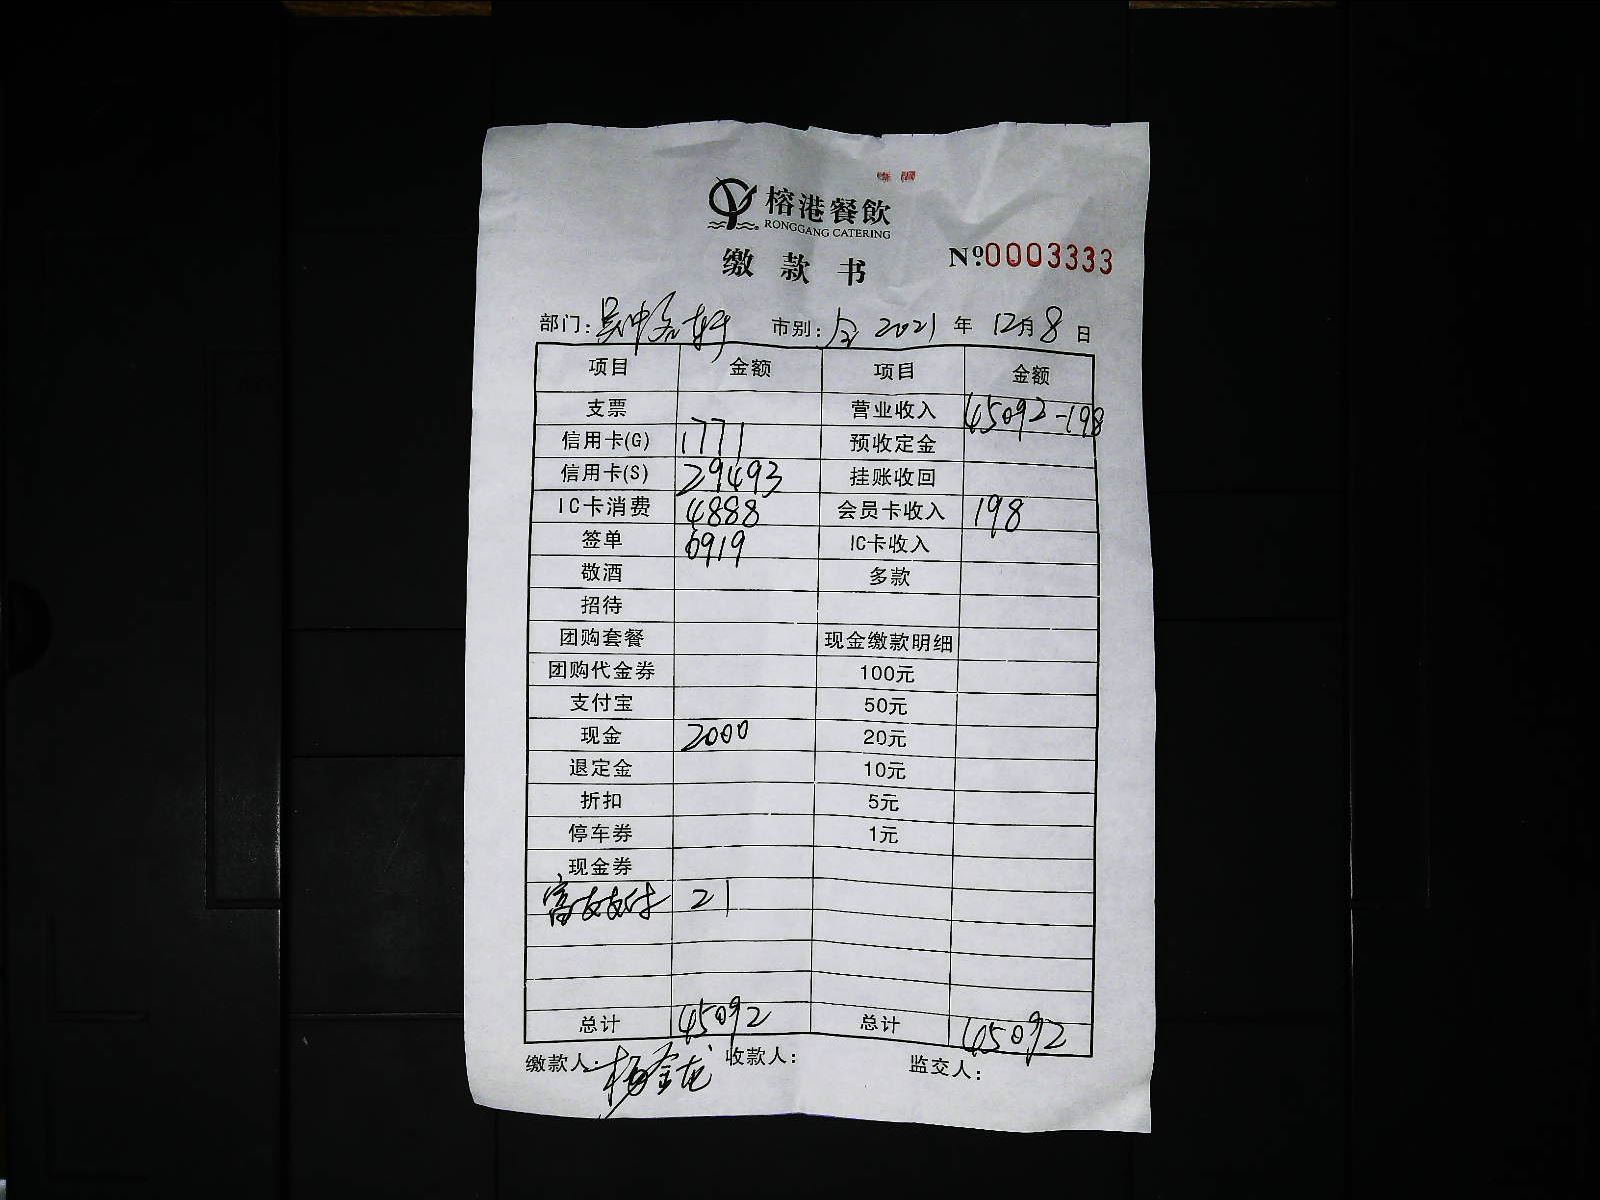 榕港餐飲
RONGGANG CATERING
缴款书 №0003333
部门: 吴中名轩 市别: 全 2021 年 12月 8 日
项目 金额 项目 金额
支票 营业收入 45092-198
信用卡(G) 1771 预收定金
信用卡(S) 29493 挂账收回
IC卡消费 4888 会员卡收入 198
签单 6919 IC卡收入
敬酒 多款
招待
团购套餐 现金缴款明细
团购代金券 100元
支付宝 50元
现金 2000 20元
退定金 10元
折扣 5元
停车券 1元
现金券
富友支付 21
总计 45092 总计 45092
缴款人: 杨金龙 收款人: 监交人: